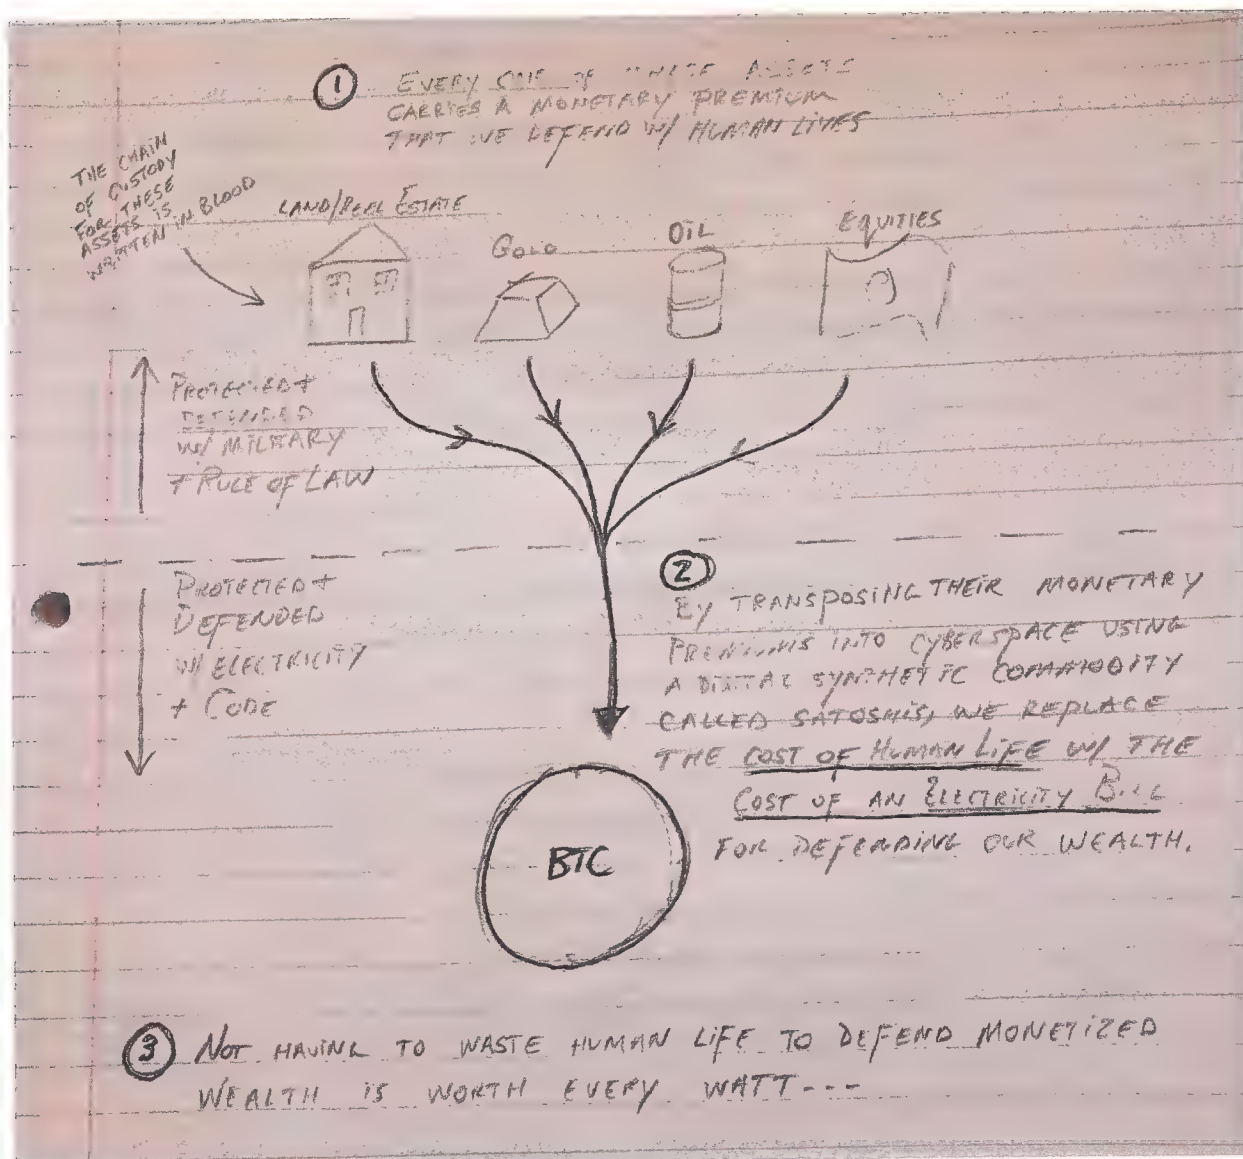 1 EVERY ONE OF THESE ASSETS
CARRIES A MONETARY PREMIUM
THAT WE DEFEND W/ HUMAN LIVES
THE CHAIN
OF CUSTODY
FOR THESE
ASSETS IS
WRITTEN IN BLOOD
LAND/REAL ESTATE
GOLD
OIL
EQUITIES
PROTECTED +
DEFENDED
W/ MILITARY
+ RULE OF LAW
PROTECTED +
DEFENDED
W/ ELECTRICITY
+ CODE
2
BY TRANSPOSING THEIR MONETARY
PREMIUMS INTO CYBERSPACE USING
A DIGITAL SYNTHETIC COMMODITY
CALLED SATOSHIS, WE REPLACE
THE COST OF HUMAN LIFE W/ THE
COST OF AN ELECTRICITY BILL
FOR DEFENDING OUR WEALTH.
BTC
3 NOT HAVING TO WASTE HUMAN LIFE TO DEFEND MONETIZED
WEALTH IS WORTH EVERY WATT ---